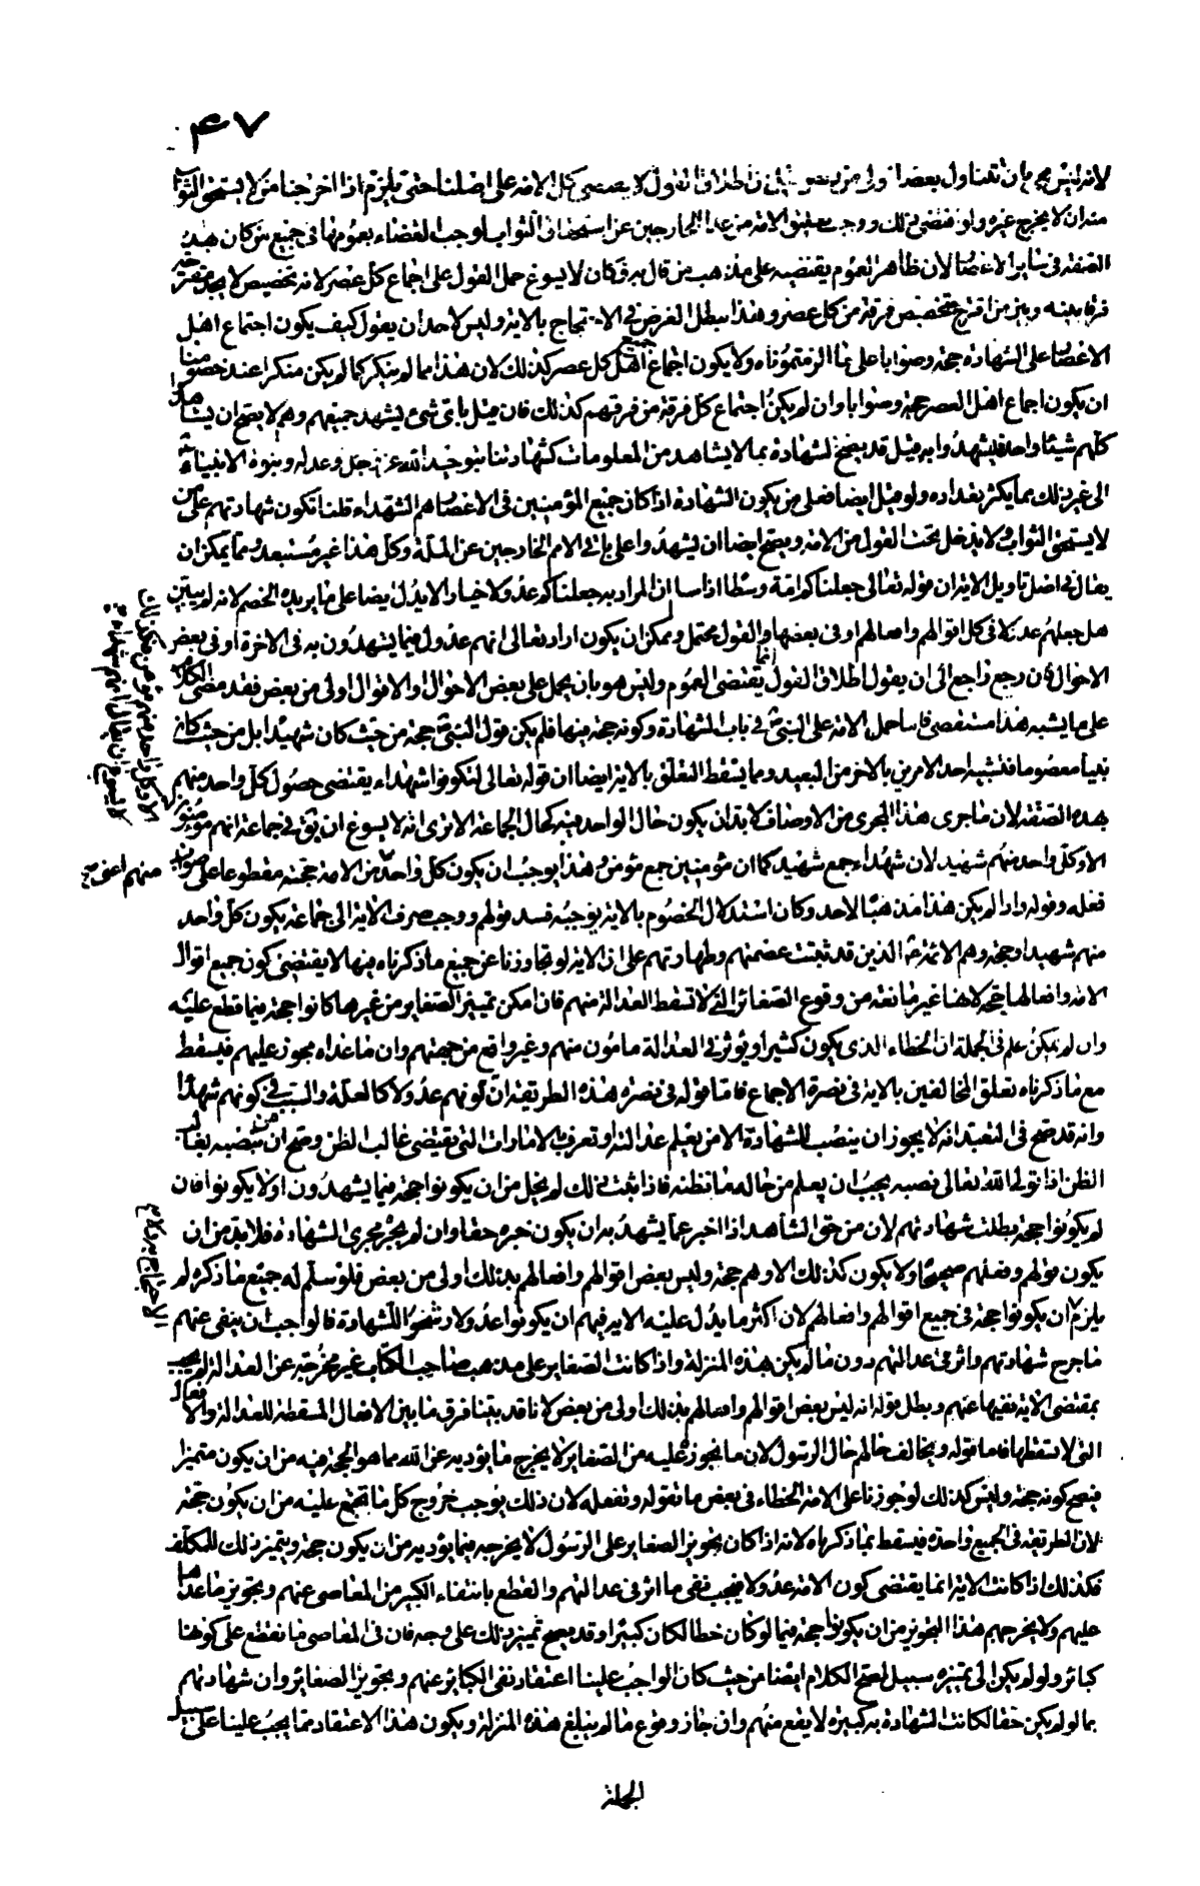 ۴۷
لانه ليس بان تتناول بعضا اولى من بعض القول لا يقتضى كل الامة على اصلنا حتى يلزم اذا اخرجنا من لا يستحق الثواب
منه ان لا يخرج غيره ولو اقتضى ذلك ووجب تعليق الامة من عدا الخارجين عن استحقاق الثواب لوجب القضاء بعمومها فى جميع من كان هذه
الصفة فى سائر الاعصار لان ظاهر العموم يقتضيه على مذهب من قال به فكان لا يسوغ حمل القول على اجماع كل عصر لانه تخصيص لا يجد مقترحه
فرقا بينه وبين من اقترح تخصيص فرقة من كل عصر وهذا يبطل الغرض فى الاحتجاج بالاية وليس لاحد ان يقول كيف يكون اجتماع اهل
الاعصار على الشهادة حجة وصوابا على ما الزمتموناه ولا يكون اجماع جميع اهل كل عصر كذلك لان هذا مما لم ينكر كما لم يكن منكرا عند خصومنا
ان يكون اجماع اهل العصر حجة وصوابا وان لم يكن اجتماع كل فرقة من فرقهم كذلك فان قيل باى شئ يشهد جميعهم وهم لا يصح ان يشاهدوا
كلهم شيئا واحدا فيشهدوا به قيل قد يصح الشهادة بما لا يشاهد من المعلومات كشهادتنا بتوحيد الله عز وجل وعدله وبنبوة الانبياء
الى غير ذلك مما يكثر تعداده ولو قيل ايضا فعلى من يكون الشهادة اذا كان جميع المؤمنين فى الاعصار هم الشهداء قلنا تكون شهادتهم على من
لا يستحق الثواب ولا يدخل تحت القول من الامة ويصح ايضا ان يشهدوا على باقى الامم الخارجين عن الملة وكل هذا غير مستبعد ومما يمكن ان
يقال فى اصل تاويل الاية ان قوله تعالى جعلناكم امة وسطا اذا سلم ان المراد به جعلناكم عدولا خيارا لا يدل ايضا على ما يريده الخصم لانه لم يبين
هل جعلهم عدولا فى كل اقوالهم وافعالهم او فى بعضها والقول محتمل وممكن ان يكون اراد تعالى انهم عدول فيما يشهدون به فى الاخرة او فى بعض
الاحوال فان رجع راجع الى ان يقول اطلاق القول انما يقتضى العموم وليس هو بان يحمل على بعض الاحوال او الاقوال اولى من بعض فقد مضى الكلام
على ما يشبه هذا مستقصى فاما حمل الامة على النبى فى باب الشهادة وكونه حجة فيها فلم يكن قول النبى حجة من حيث كان شهيدا بل من حيث كان
نبيا معصوما فتشبيه احد الامرين بالاخر من البعيد ومما يسقط التعلق بالاية ايضا ان قوله تعالى لتكونوا شهداء يقتضى حصول كل واحد منهم
بهذه الصفة لان ما جرى هذا المجرى من الاوصاف لا بد ان يكون حال الواحد فيه كحال الجماعة الا ترى انه لا يسوغ ان يق فى جماعة انهم مؤمنون
الا وكل واحد منهم شهيد لان شهداء جمع شهيد كما ان مؤمنين جمع مؤمن وهذا يوجب ان يكون كل واحد من الامة حجة مقطوعا على صواب
فعله وقوله واذا لم يكن هذا مذهبا لاحد وكان استدلال الخصوم بالاية يوجبه فسد قولهم ووجب صرف الاية الى جماعة يكون كل واحد
منهم شهيدا وحجة وهم الائمة الذين قد ثبتت عصمتهم وطهارتهم على ان الاية لو تجاوزنا عن جميع ما ذكرناه فيها لا يقتضى كون جميع اقوال
الامة وافعالها حجة لانها غير مانعة من وقوع الصغائر التى لا تسقط العدالة منهم فان امكن تمييز الصغاير من غيرها كانوا حجة فيما قطع عليه
وان لم يمكن علم فى الجملة ان الخطاء الذى يكون كثيرا ويؤثر فى العدالة مامون منهم وغير واقع من جهتهم وان ما عداه مجوز عليهم فيسقط
مع ما ذكرناه تعلق المخالفين بالاية فى نصرة الاجماع فاما قوله فى نصرة هذه الطريقة ان كونهم عدولا كالعلة والسبب فى كونهم شهداء
وانه قد صح فى التعبد انه لا يجوز ان ينصب للشهادة الا من يعلم عدالته او تعرف بالامارات التى تقتضى غالب الظن وصح ان من ينصبه بغالب
الظن اذا تولى الله تعالى نصبه يجب ان يعلم من حاله ما نظنه فاذا ثبت ذلك لم يخل من ان يكونوا حجة فيما يشهدون او لا يكونوا فان
لم يكونوا حجة بطلت شهادتهم لان من حق الشاهد اذا اخبر عما يشهد به ان يكون خبره حقا وان لم يجر مجرى الشهادة فلا بد من ان
يكون قولهم وفعلهم صحيحا ولا يكون كذلك الا وهم حجة وليس بعض اقوالهم وافعالهم بذلك اولى من بعض فلو سلم له جميع ما ذكره لم
يلزم ان يكونوا حجة فى جميع اقوالهم وافعالهم لان اكثر ما يدل عليه الاية فيهم ان يكونوا عدولا رشحوا للشهادة فالواجب ان ينفى عنهم
ما جرح شهادتهم واثر فى عدالتهم دون ما لم يكن بهذه المنزلة واذا كانت الصغاير على مذهب صاحب الكتاب غير مخرجة عن العدالة لم يجب
بمقتضى الاية نفيها عنهم وبطل قوله انه ليس بعض اقوالهم وافعالهم بذلك اولى من بعض لانا قد بينا فرق ما بين الافعال المسقطة للعدالة والافعال
التى لا تسقطها فاما قوله ويخالف حالهم حال الرسول لان ما يجوز عليه من الصغاير لا يخرج ما يؤديه عن الله مما هو الحجة فيه من ان يكون متميزا
فيصح كونه حجة وليس كذلك لو جوزنا على الامة الخطاء فى بعض ما تقوله وتفعله لان ذلك يوجب خروج كل ما تجمع عليه من ان يكون حجة
لان الطريقة فى الجميع واحدة فيسقط بما ذكرناه لانه اذا كان تجويز الصغاير على الرسول لا يخرجه فيما يؤديه من ان يكون حجة ويتميز ذلك للمكلف
فكذلك اذا كانت الاية انما يقتضى كون الامة عدولا فيجب نفى ما اثر فى عدالتهم والقطع بانتفاء الكبير من المعاصى عنهم وتجويز ما عداها
عليهم ولا يخرجهم هذا التجويز من ان يكونوا حجة فيما لو كان خطا لكان كبيرا وقد يصح تمييز ذلك على وجه فان فى المعاصى ما نقطع على كونها
كبائر ولو لم يكن الى تميزه سبيل لصح الكلام ايضا من حيث كان الواجب علينا اعتقاد نفى الكبائر عنهم وتجويز الصغائر وان شهادتهم
بما لو لم يكن حقا لكانت الشهادة به كبيرة لا يقع منهم وان جاز وقوع ما لم يبلغ هذه المنزلة ويكون هذا الاعتقاد مما يجب علينا على سبيل
الجملة
الا وكل واحد منهم مؤمن فكذلك
لا يسوغ ان يقال انهم شهداء
منهم اعنى
الاحتجاج به وكلام